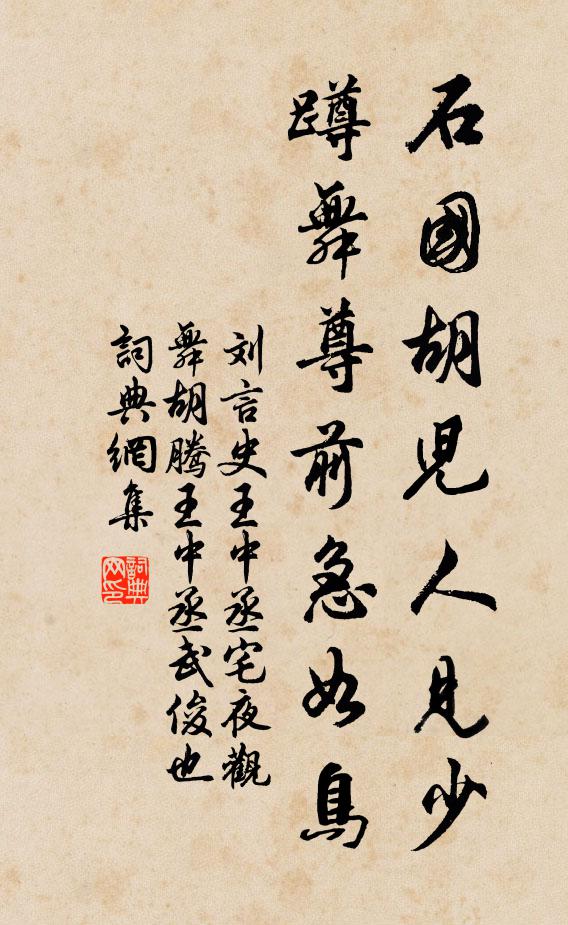 石國胡児人見少
蹲舞尊前急如鳥
刘言史王中丞宅夜觀
舞胡腾王中丞武俊也
詞典網集
詞典网印